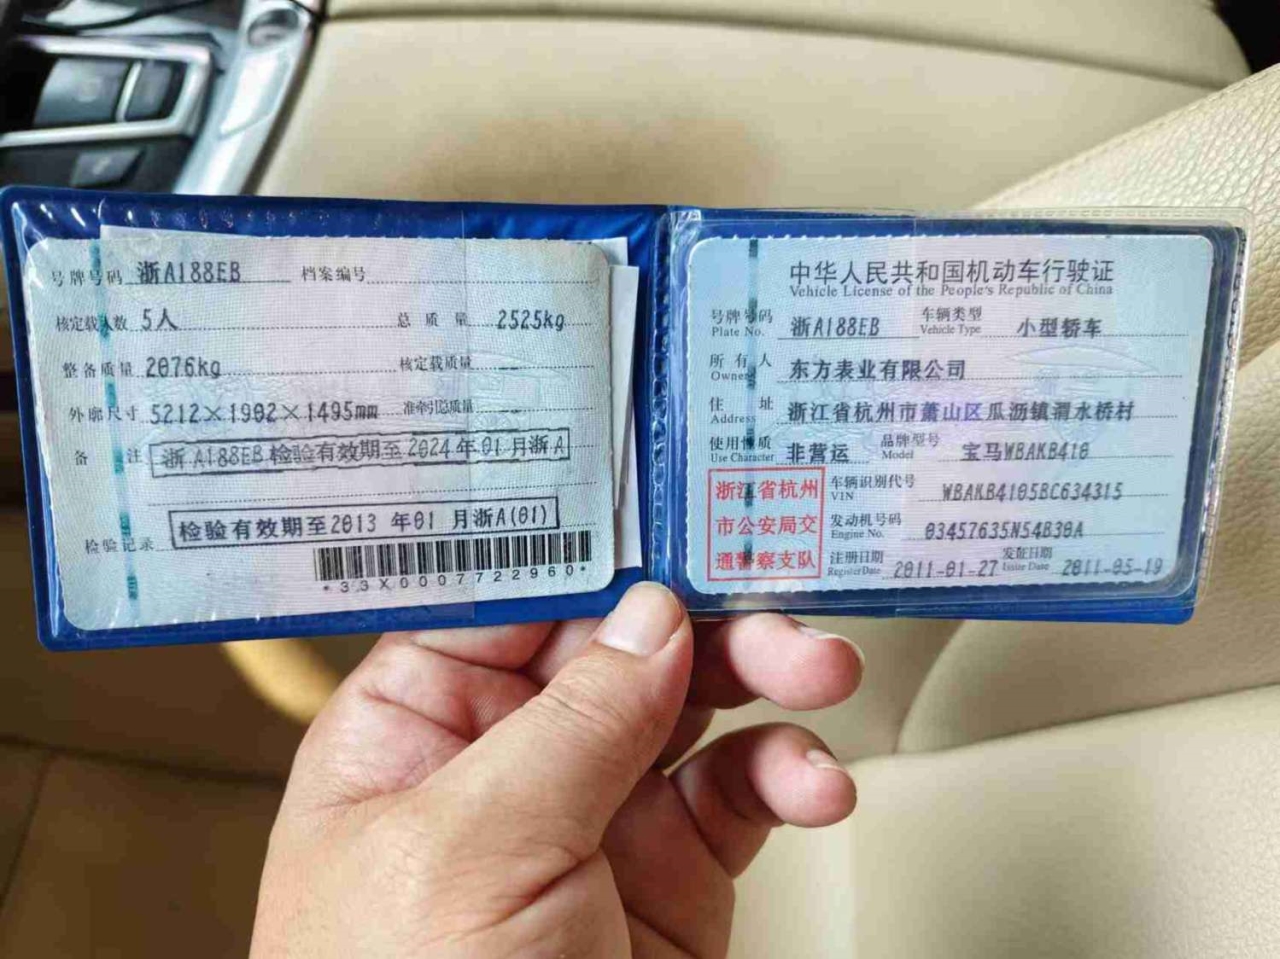 号牌号码 浙A188EB 档案编号
核定载人数 5人 总质量 2525kg
整备质量 2076kg 核定载质量
外廓尺寸 5212×1902×1495mm 准牵引总质量
备注 浙A188EB 检验有效期至2024年01月浙A
检验记录 检验有效期至2013年01月浙A(01)
*33X0007722960*
中华人民共和国机动车行驶证
Vehicle License of the People's Republic of China
号牌号码 浙A188EB 车辆类型 小型轿车
Plate No. Vehicle Type
所有人 东方表业有限公司
Owner
住址 浙江省杭州市萧山区瓜沥镇渭水桥村
Address
使用性质 非营运 品牌型号 宝马WBAKB410
Use Character Model
浙江省杭州
市公安局交
通警察支队
车辆识别代号 WBAKB4105BC634315
VIN
发动机号码 03457635N54B30A
Engine No.
注册日期 2011-01-27 发证日期 2011-05-19
Register Date Issue Date